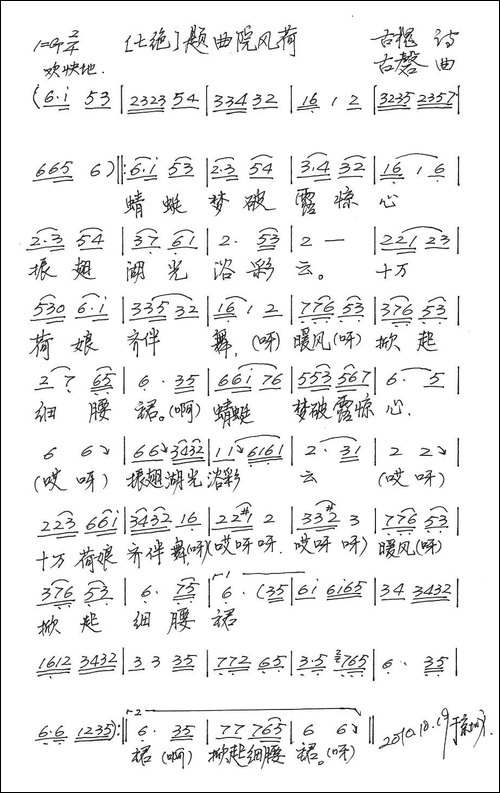 1=G 2/4 [七绝] 题曲院风荷 古棍 诗
欢快地. 古磬 曲
(6·i 53 | 2323 54 | 334 32 | 16 1 2 | 3235 2357 |
665 6) ‖: 6·i 53 | 2·3 54 | 3·4 32 | 16 1 6 |
蜻蜓 梦破 露惊 心
2·3 54 | 37 61 | 2· 53 | 2 — | 221 23 |
振翅 湖光 浴彩 云。 十万
530 6·i | 335 32 | 16 1 2 | 776 53 | 376 53 |
荷娘 齐伴 舞, (呀) 暖风(呀) 掀起
2 7 65 | 6· 35 | 661 76 | 553 567 | 6· 5 |
细腰 裙。(啊) 蜻蜓 梦破露惊 心.
6 6 | 66 3432 | 11 6161 | 2· 31 | 2 2 |
(哎呀) 振翅湖光 浴彩 云 (哎呀)
223 66i | 3432 16 | 22# 2 | 332# 3 | 776 53 |
十万荷娘 齐伴舞(呀)(哎呀呀. 哎呀呀) 暖风(呀)
376 53 | 6· 75 | 6· (35 | 6i 6i65 | 34 3432 |
掀起 细腰 裙
1612 3432 | 3 3 35 | 772 65 | 3·5 2765 | 6· 35 |
6·6 1235) :‖ 6· 35 | 77 765 | 6 6 ‖ 2010.10.19于
裙(啊) 掀起细腰 裙。(呀)